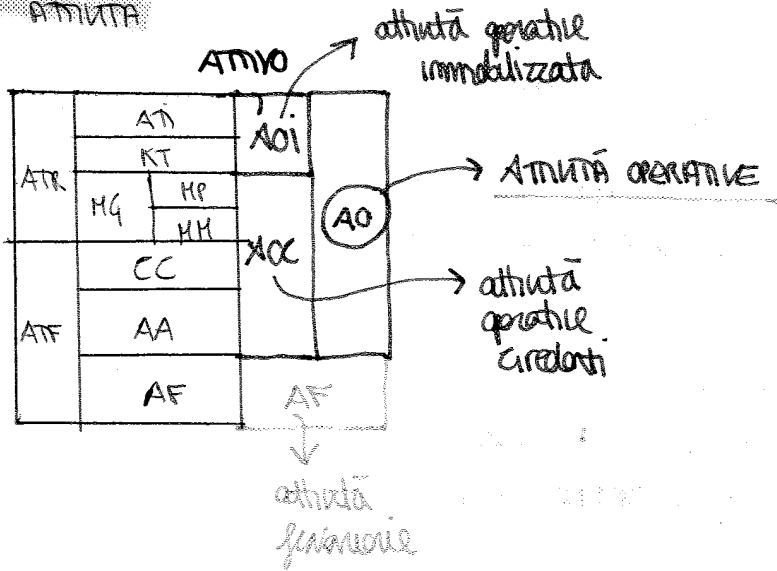 ATTIVITÀ
ATTIVO
attività operative
immobilizzata
ATR
ATI
KT
MG
MP
MM
AOi
AO
ATTIVITÀ OPERATIVE
AOC
attività
operative
ATF
CC
AA
AF
AF
attività
finanziarie